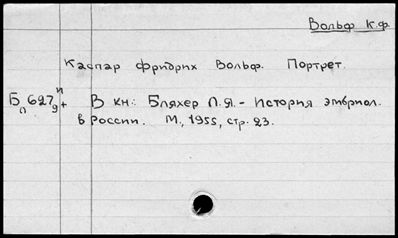 Вольф К.Ф.
Каспар Фридрих Вольф. Портрет.
Б п 627 и 9+ В кн.: Бляхер Л.Я. - История эмбриол.
в России. М., 1955, стр. 23.